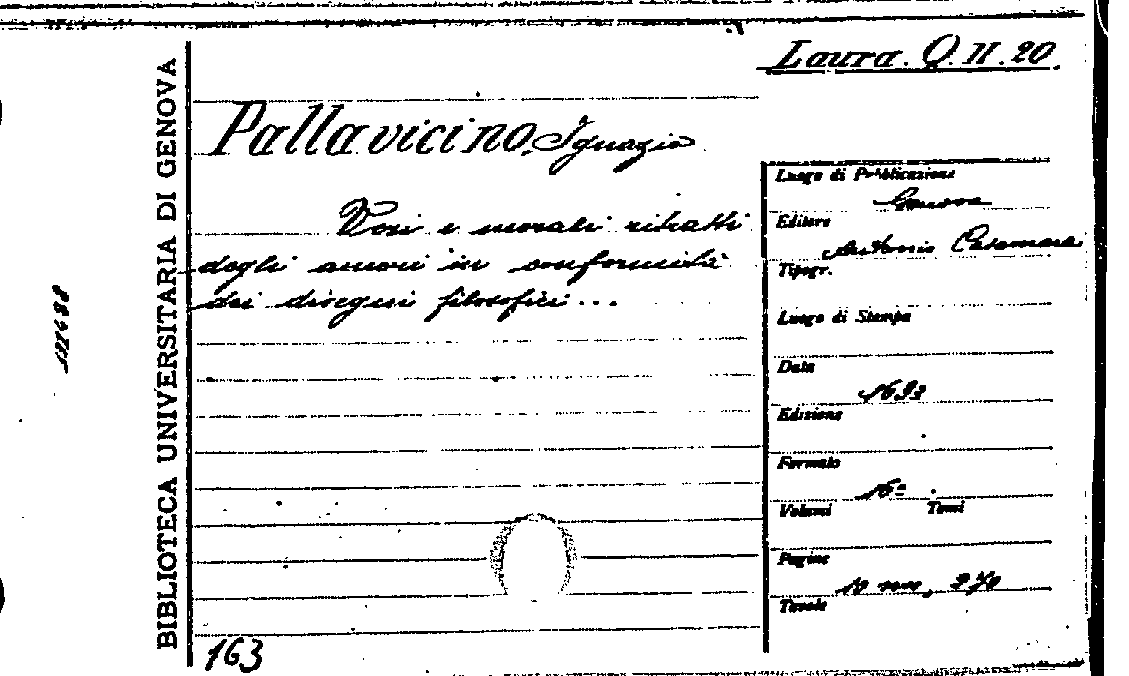 Laura. Q. II. 20.
BIBLIOTECA UNIVERSITARIA DI GENOVA
Pallavicino, Ignazio
Veri e morali ritratti
degli amori in conformità
dei disegni filosofici...
163
Luogo di Pubblicazione
Genova
Editore
Antonio Casamara
Tipogr.
Luogo di Stampa
Data
Edizione
Formato
16º
Volumi Tomi
Pagine
10 nnn, 270
Tavole